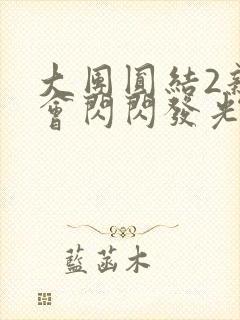 大團圓結2新
會閃閃發光
藍菡木